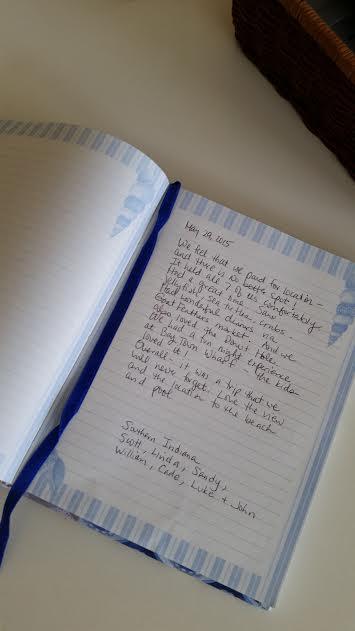 May 29, 2015
We feel that we paid for location -
and there is no better spot.
It held all 7 of us comfortably
Had a great time. Saw
jellyfish, sea turtle, crabs.
Had wonderful dinners via
Goat Feathers market. And we
also loved the Donut Hole.
We had a fun night experience
at Bay Town Wharf - the kids
loved it!
Overall - it was a trip that we
will never forget. Love the view
and the location to the beach
and pool.
Southern Indiana
Scott, Linda, Sandy,
William, Cade, Luke + John